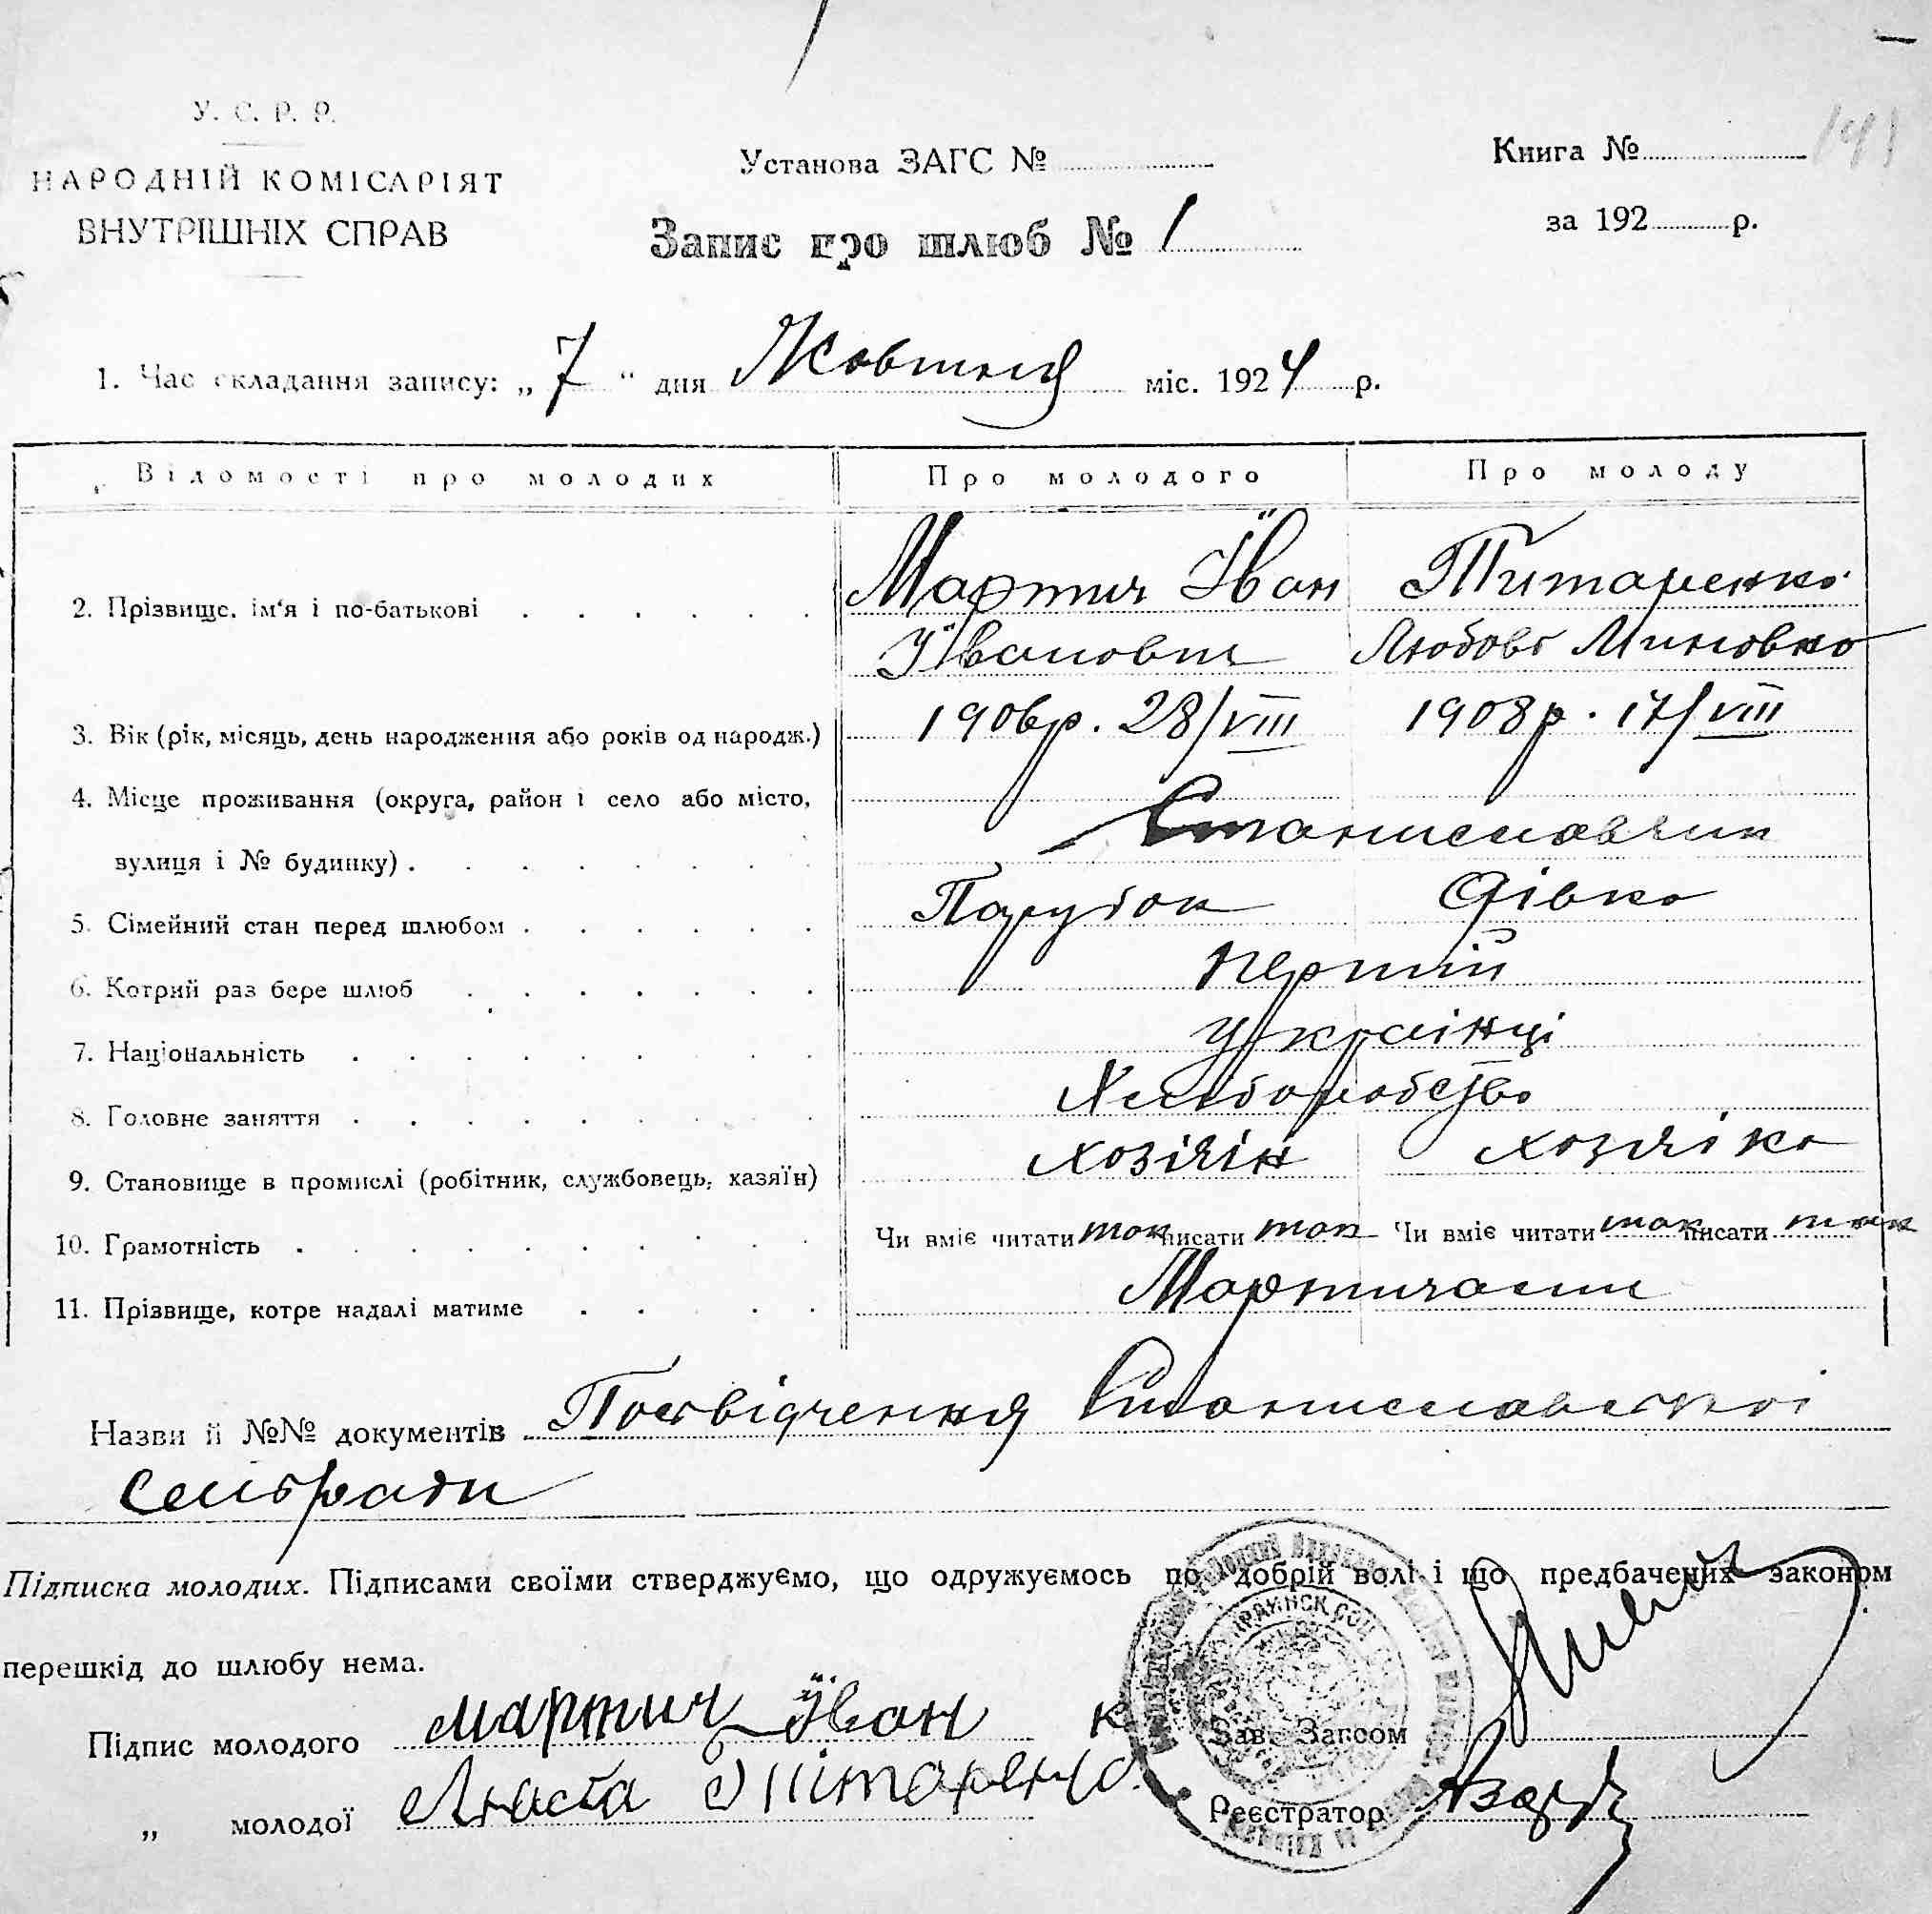 У. С. Р. Р.
НАРОДНІЙ КОМІСАРІЯТ
ВНУТРІШНІХ СПРАВ
Установа ЗАГС №
Запис про шлюб № 1
Книга №
за 192 р.
1. Час складання запису: „ 7 “ дня Жовтня міс. 1924 р.
Відомості про молодих Про молодого Про молоду
Мартич Іван Титаренко
2. Прізвище, ім'я і по-батькові
Іванович Любовь
3. Вік (рік, місяць, день народження або років од народж.) 1906р. 28/VIII 1908р. 17/VIII
4. Місце проживання (округа, район і село або місто,
вулиця і № будинку) Станиславчик
5. Сімейний стан перед шлюбом Парубок Дівка
6. Котрий раз бере шлюб перший
7. Національність українці
8. Головне заняття Хліборобство
9. Становище в промислі (робітник, службовець, хазяїн) хозяїн хозяйка
10. Грамотність Чи вміє читати так писати так Чи вміє читати так писати так
11. Прізвище, котре надалі матиме Мартичами
Назви й №№ документів Посвідчення Станиславської
сельради
Підписка молодих. Підписами своїми стверджуємо, що одружуємось по добрій волі і що предбачених законом
перешкід до шлюбу нема.
Підпис молодого Мартич Іван
Зав. Загсом
„ молодої Люба Титаренко
Реєстратор